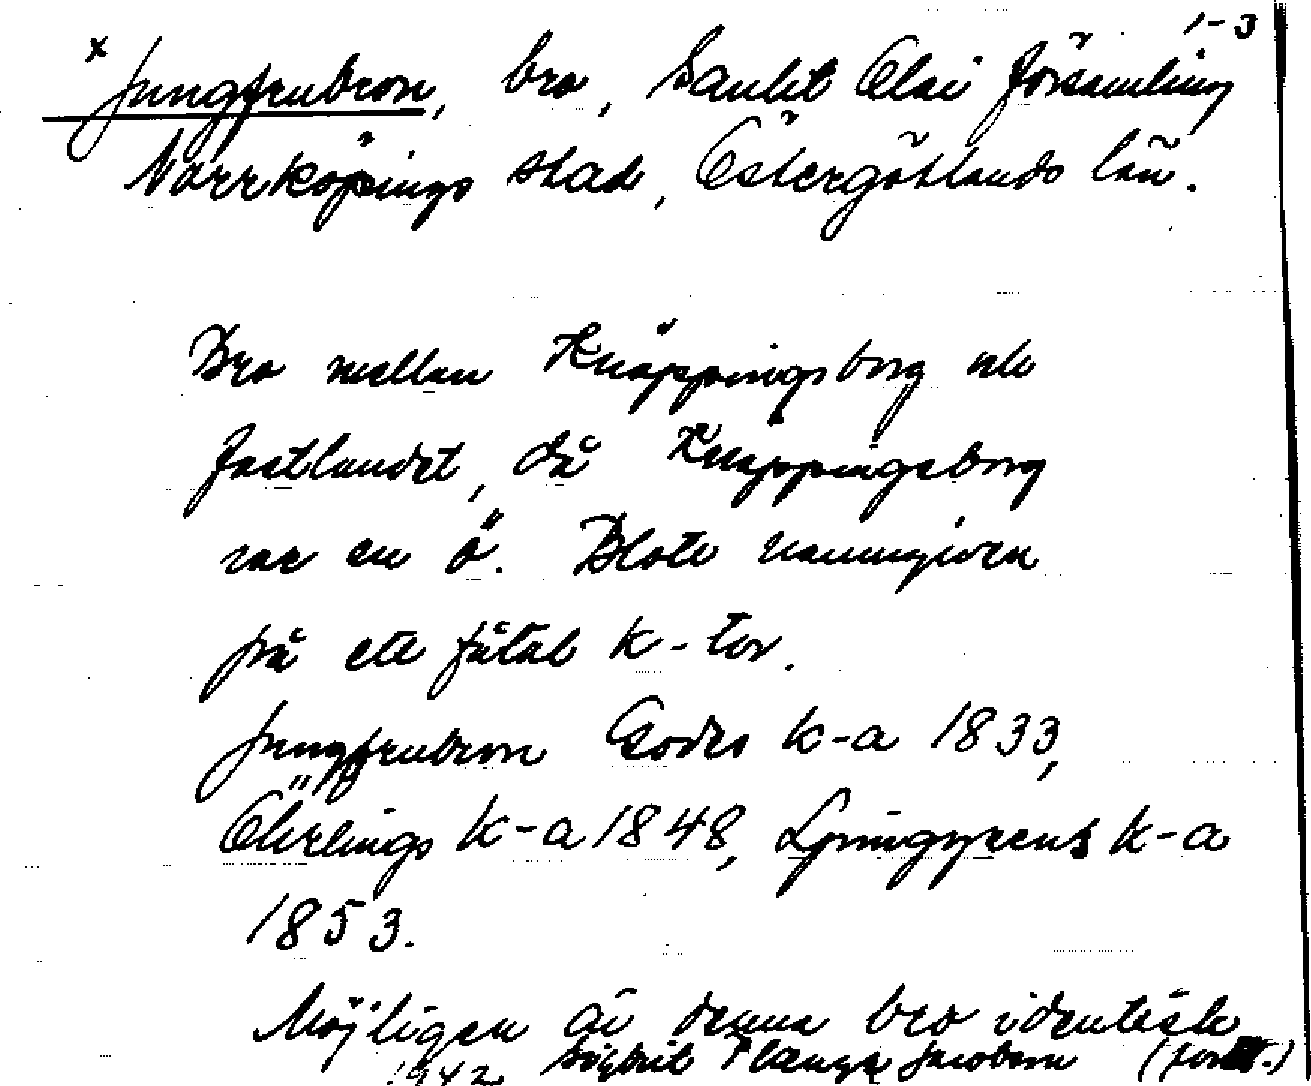 1-3
x Jungfrubron, bro, Sankt Olai församling
Norrköpings stad, Östergötlands län.
Bro mellan Knäppingsborg och
fastlandet, då Knäppingsborg
var en ö. Blott namngiven
på ett fåtal k-tor.
Jungfrubron Godes k-a 1833,
Öhrlings k-a 1848, Ljunggrens k-a
1853.
Möjligen är denna bro identisk
1942 Sigbrit Plænge Jacobson (forts.)